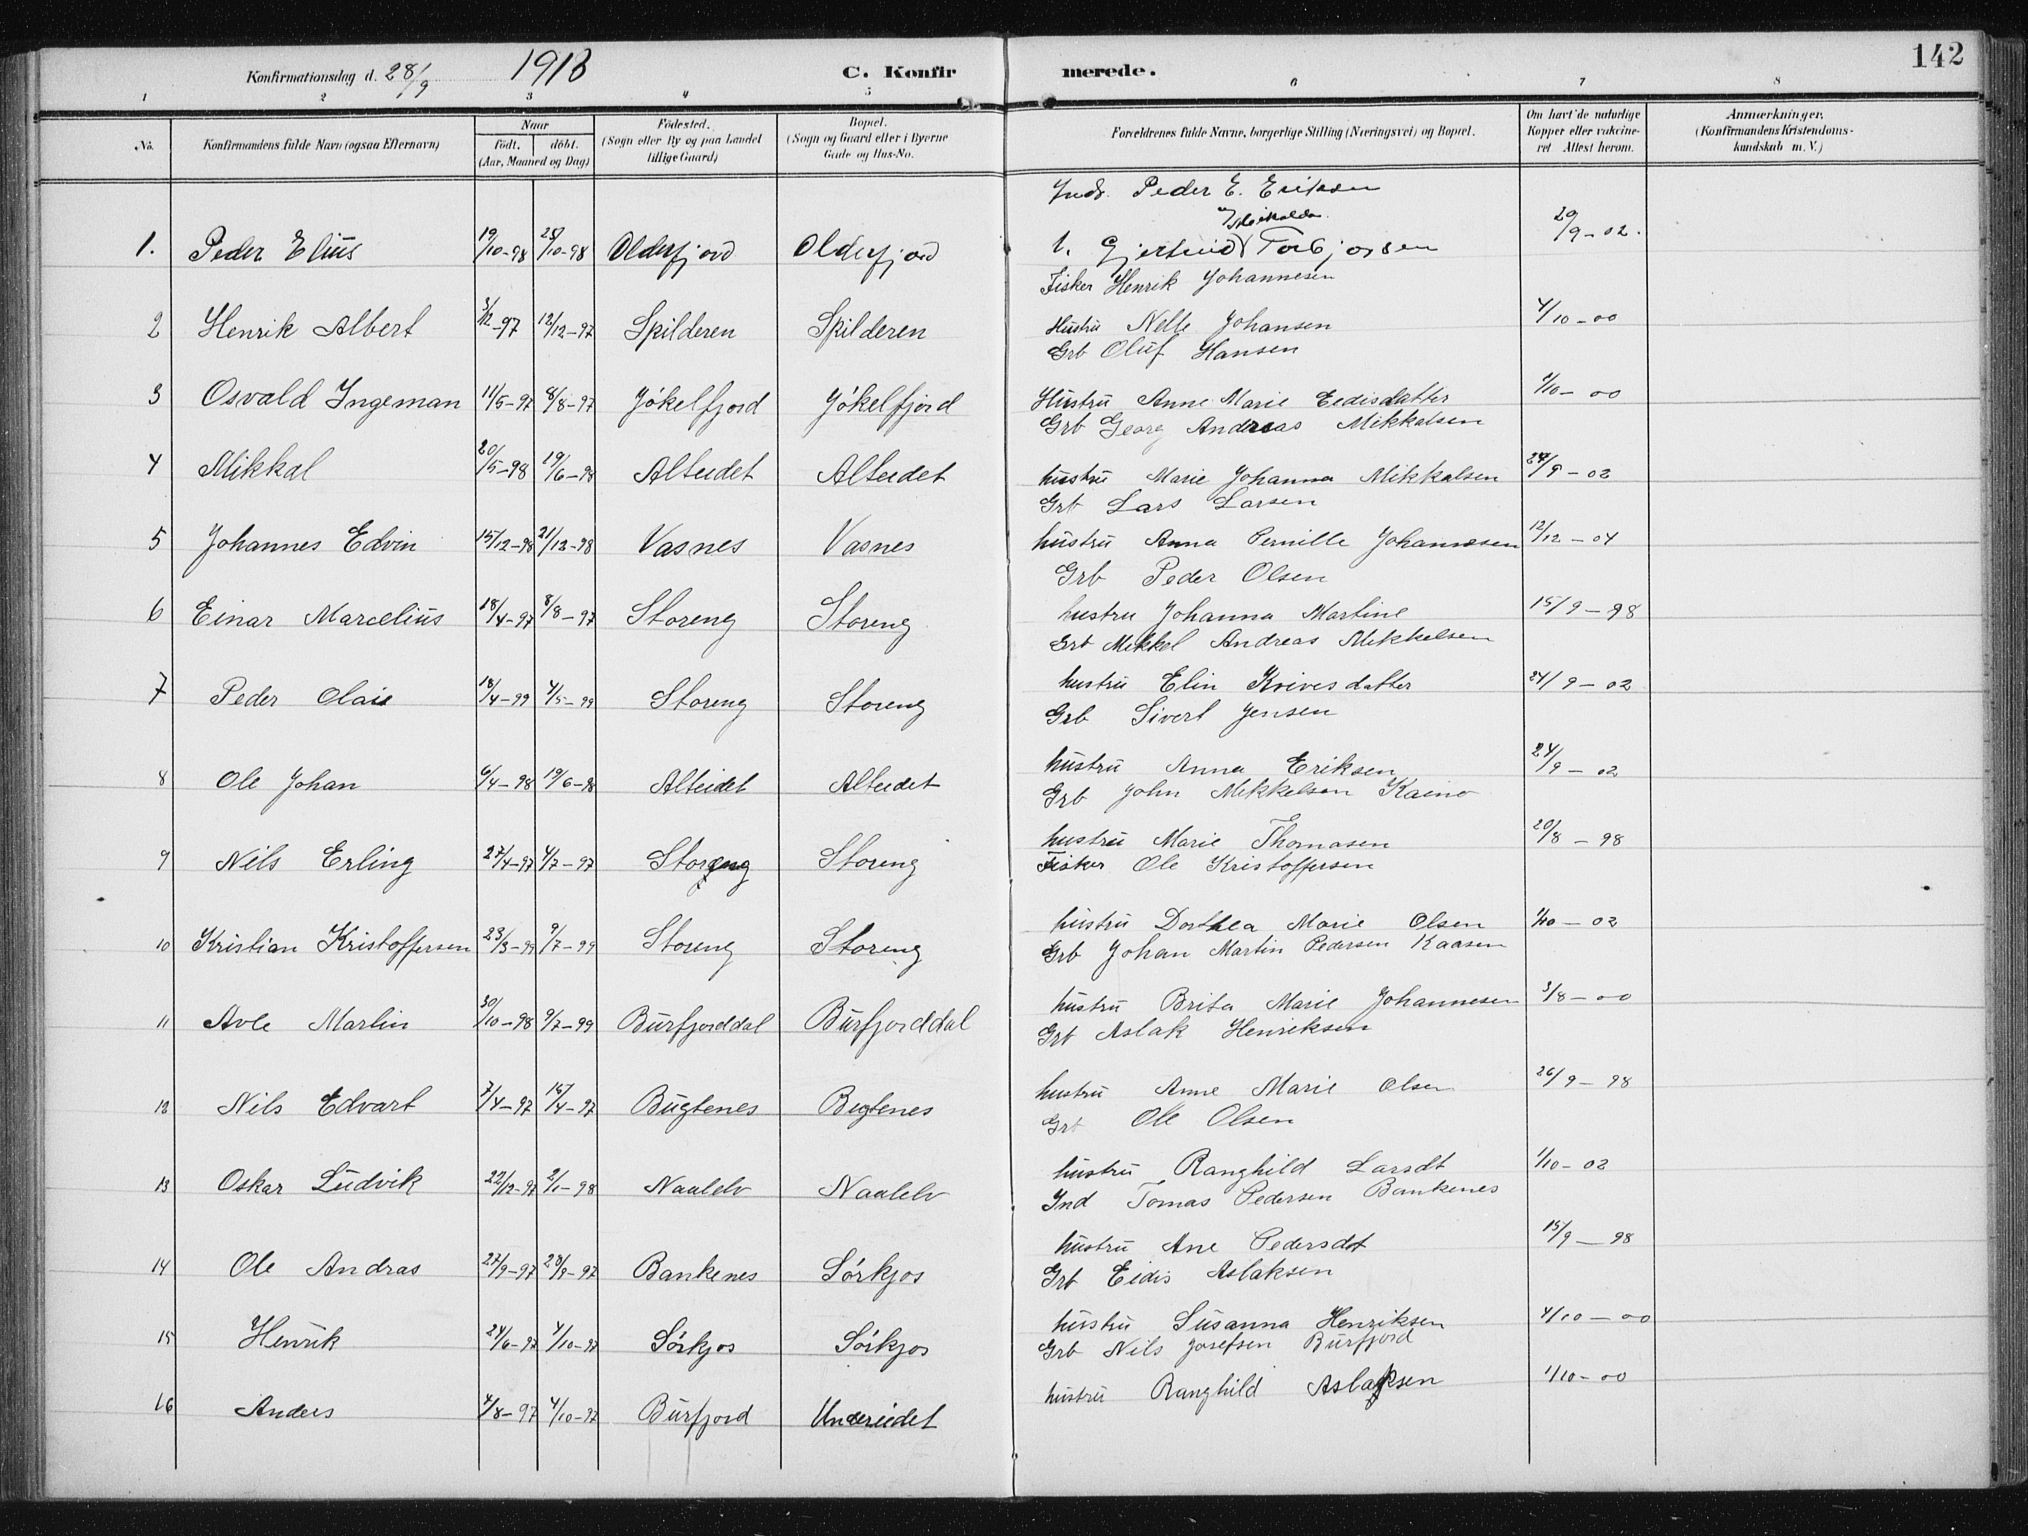 142
Konfirmationsdag d. 28/9 1913 C. Konfirmerede.
1 2 3 4 5 6 7 8
No. Konfirmandens fulde Navn (ogsaa Efternavn) Naar født. døbt. (Aar, Maaned og Dag) Fødested. (Sogn eller By og paa Landet tillige Gaard) Bopæl. (Sogn og Gaard eller i Byerne Gade og Hus-No. Forældrenes fulde Navne, borgerlige Stilling (Næringsvei) og Bopæl. Om havt de naturlige Kopper eller vakcineret Attest herom. Anmærkninger. (Konfirmandens Kristendomskundskab m. V.)
Inds. Peder E. Eriksen
1. Peder Elius 19/10-98 25/10-98 Olderfjord Olderfjord Gjertrud Torbjørsen 29/9-02.
Fisker Henrik Johannesen
2 Henrik Albert 3/12-97 12/12-97 Spilderen Spilderen Hustru Nelle Johansen 4/10-00
Grb Oluf Hansen
3 Osvald Ingeman 11/5-97 8/8-97 Jøkelfjord Jøkelfjord Hustru Anne Marie Eedisdatter 1/10-00
Grb Georg Andreas Mikkalsen
4 Mikkal 20/5-98 19/6-98 Alteidet Alteidet hustru Marie Johanna Mikkalsen 24/9-02
Grb Lars Larsen
5 Johannes Edvin 15/12-98 21/12-98 Vasnes Vasnes hustru Anna Pernille Johannesen 12/12-04
Grb Peder Olsen
6 Einar Marcelius 18/4-97 8/8-97 Storeng Storeng hustru Johanna Martine 15/9-98
Grb Mikkel Andreas Mikkelsen
7 Peder Olai 18/4-99 4/5-99 Storeng Storeng hustru Elin Krivesdatter 24/9-02
Grb Sivert Jensen
8 Ole Johan 6/4-98 19/6-98 Alteidet Alteidet hustru Anna Eriksen 24/9-02
Grb John Mikkelsen Kaino
9 Nils Erling 27/4-97 4/7-97 Storeng Storeng hustru Marie Thomasen 20/8-98
Fisker Ole Kristoffersen
10 Kristian Kristoffersen 23/3-99 9/7-99 Storeng Storeng hustru Dorthea Marie Olsen 1/10-02
Grb Johan Martin Pedersen Kaasen
11 Avle Martin 30/10-98 9/7-99 Burfjorddal Burfjorddal hustru Brita Marie Johannesen 3/8-00
Grb Aslak Henriksen
12 Nils Edvart 7/4-97 15/4-97 Bugtenes Bugtenes hustru Anne Marie Olsen 26/9-98
Grb Ole Olsen
13 Oskar Ludvik 22/12-97 2/1-98 Naalelv Naalelv hustru Ranghild Larsdt 1/10-02
Ind Tomas Pedersen Bankenes
14 Ole Andras 27/9-97 28/9-97 Bankenes Sørkjos hustru Ane Pedersdat 15/9-98
Grb Eidis Aslaksen
15 Henrik 24/6-97 4/10-97 Sørkjos Sørkjos hustru Susanna Henriksen 4/10-00
Grb Nils Josefsen Burfjord
16 Anders 4/8-97 4/10-97 Burfjord Undereidet hustru Ranghild Aslaksen 1/10-00